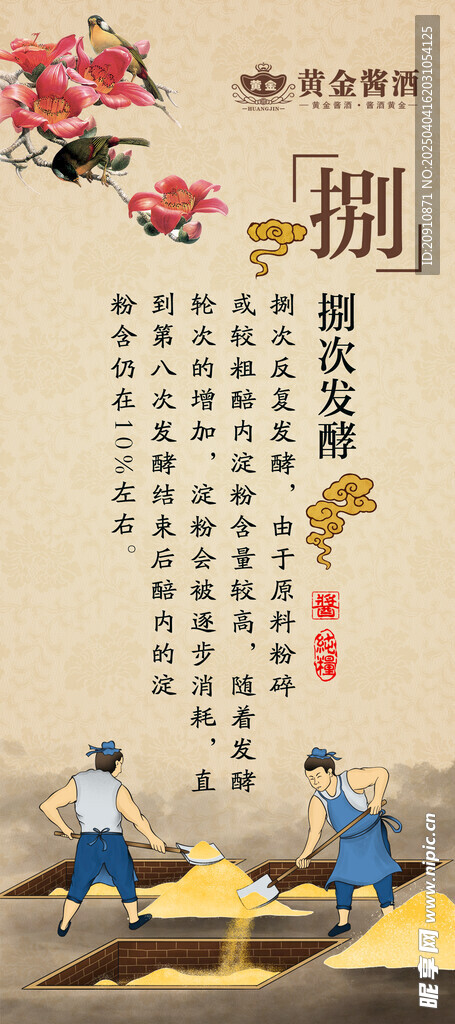 黄金
HUANGJIN
黄金酱酒
黄金酱酒·酱酒黄金
「捌」
捌次发酵
捌次反复发酵，由于原料粉碎
或较粗醅内淀粉含量较高，随着发酵
轮次的增加，淀粉会被逐步消耗，直
到第八次发酵结束后醅内的淀
粉含仍在10%左右。
醬
純糧
ID:20910871 NO:20250404162031054125
昵享网 www.nipic.cn